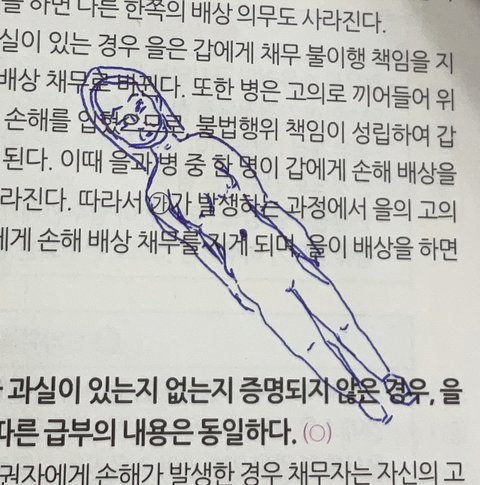 를 하면 다른 한쪽의 배상 의무도 사라진다.
실이 있는 경우 을은 갑에게 채무 불이행 책임을 지
배상 채무로 바뀐다. 또한 병은 고의로 끼어들어 위
손해를 입혔으므로 불법행위 책임이 성립하여 갑
된다. 이때 을과 병 중 한 명이 갑에게 손해 배상을
라진다. 따라서 ㉮가 발생하는 과정에서 을의 고의
에게 손해 배상 채무를 지게 되며, 을이 배상을 하면
과실이 있는지 없는지 증명되지 않은 경우, 을
따른 급부의 내용은 동일하다. (○)
권자에게 손해가 발생한 경우 채무자는 자신의 고